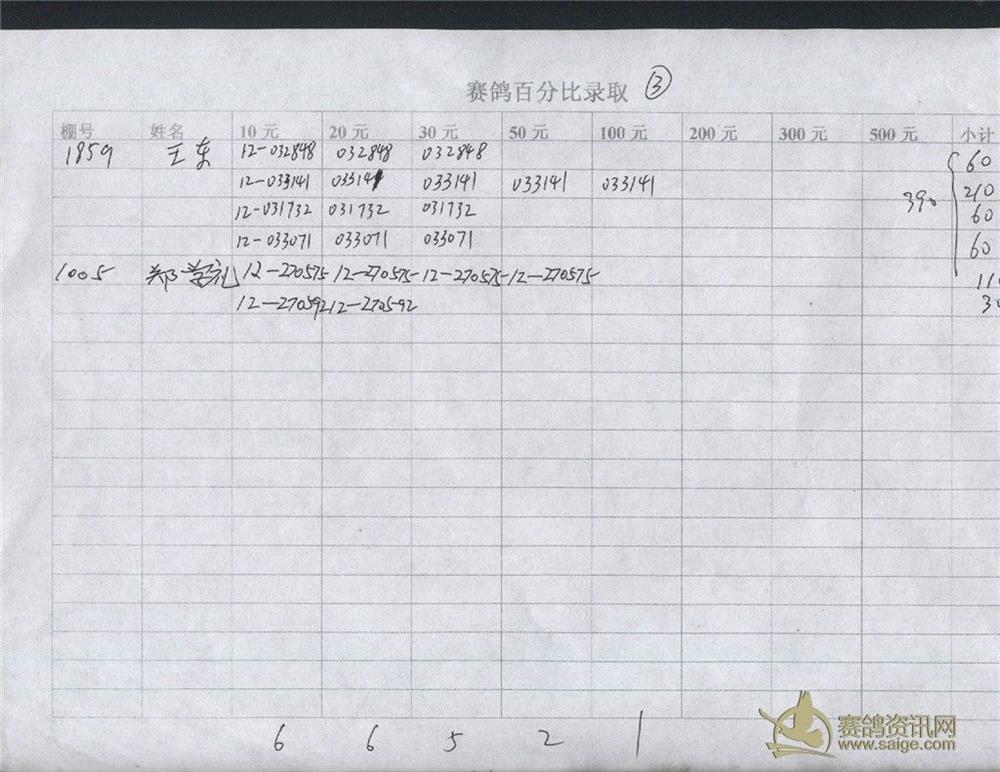 赛鸽百分比录取 ③
棚号 姓名 10 元 20 元 30 元 50 元 100 元 200 元 300 元 500 元 小计
1859 王东 12-032848 032848 032848 60
12-033141 033141 033141 033141 033141 390 210
12-031732 031732 031732 60
12-033071 033071 033071 60
1005 郑学礼 12-270575 12-270575 12-270575 12-270575 110
12-270592 12-270592 30
6 6 5 2 1
赛鸽资讯网
www.saige.com